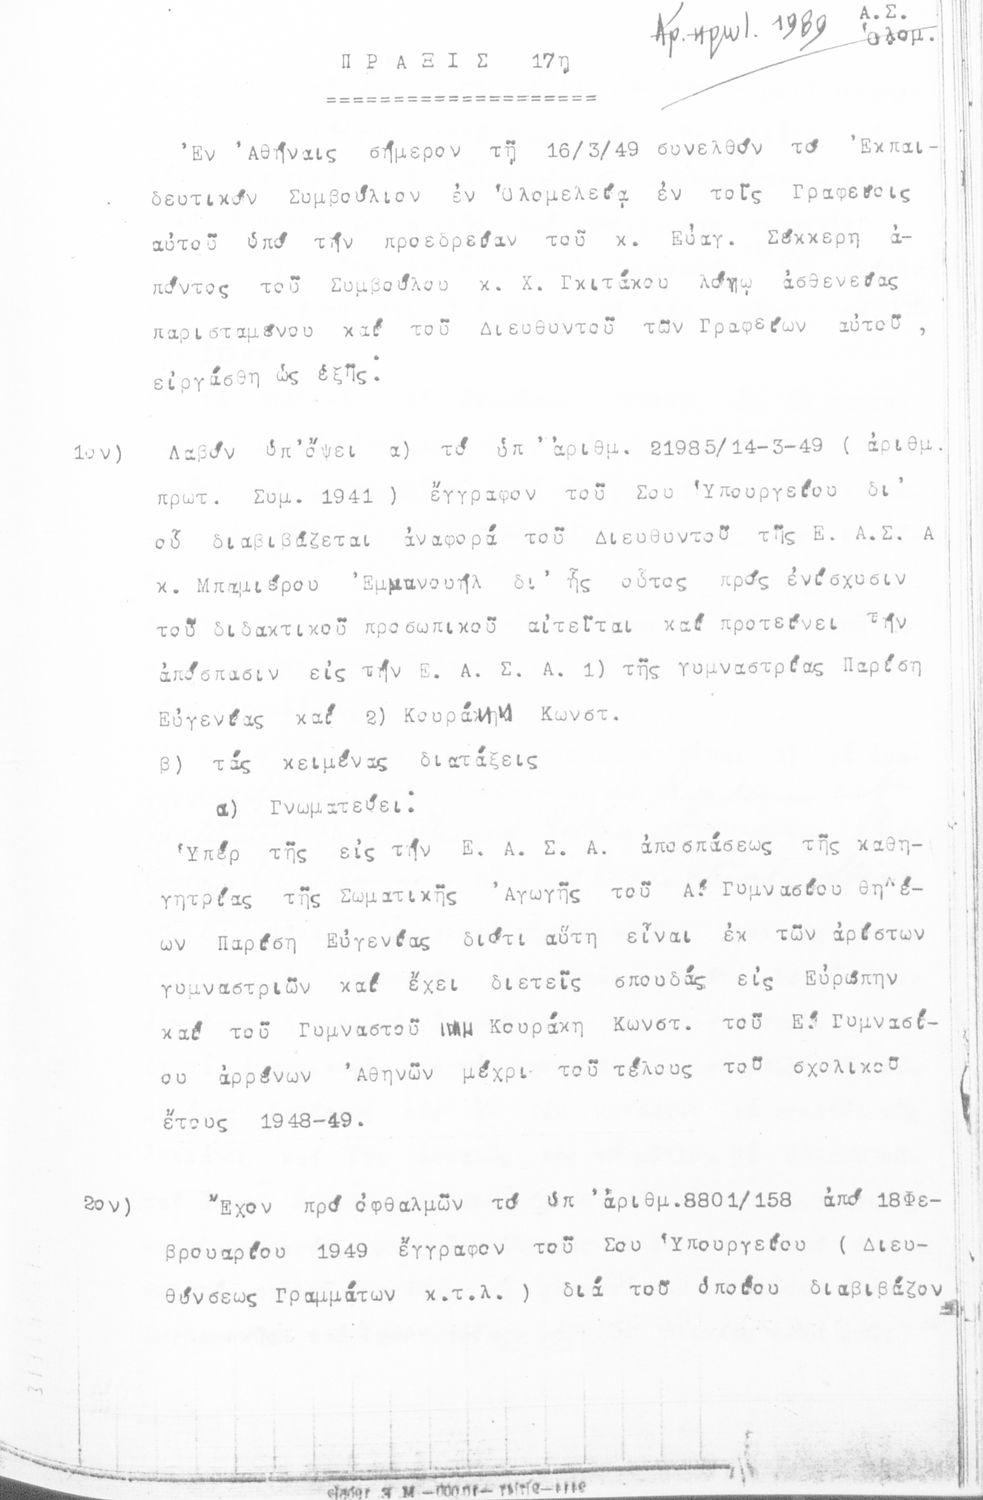 Αρ. πρωτ. 1989
Α.Σ.
Ὁλομ.
ΠΡΑΞΙΣ 17η
====================
Ἐν Ἀθήναις σήμερον τῇ 16/3/49 συνελθόν τό Ἐκπαι-
δευτικόν Συμβούλιον ἐν Ὁλομελείᾳ ἐν τοῖς Γραφείοις
αὐτοῦ ὑπό τήν προεδρείαν τοῦ κ. Εὐαγ. Σέκκερη ἀ-
πόντος τοῦ Συμβούλου κ. Χ. Γκιτάκου λόγῳ ἀσθενείας
παρισταμένου καί τοῦ Διευθυντοῦ τῶν Γραφείων αὐτοῦ ,
εἰργάσθη ὡς ἑξῆς:
1ον) Λαβόν ὑπ' ὄψει α) τό ὑπ' ἀριθμ. 21985/14-3-49 ( ἀριθμ.
πρωτ. Συμ. 1941 ) ἔγγραφον τοῦ Σου Ὑπουργείου δι'
οὗ διαβιβάζεται ἀναφορά τοῦ Διευθυντοῦ τῆς Ε. Α.Σ. Α
κ. Μπαμιέρου Ἐμμανουήλ δι' ἧς οὗτος πρός ἐνίσχυσιν
τοῦ διδακτικοῦ προσωπικοῦ αἰτεῖται καί προτείνει τήν
ἀπόσπασιν εἰς τήν Ε. Α. Σ. Α. 1) τῆς γυμναστρίας Παρίση
Εὐγενίας καί 2) Κουράκη Κωνστ.
β) τάς κειμένας διατάξεις
α) Γνωματεύει:
Ὑπέρ τῆς εἰς τήν Ε. Α. Σ. Α. ἀποσπάσεως τῆς καθη-
γητρίας τῆς Σωματικῆς Ἀγωγῆς τοῦ Α! Γυμνασίου θηλέ-
ων Παρίση Εὐγενίας διότι αὕτη εἶναι ἐκ τῶν ἀρίστων
γυμναστριῶν καί ἔχει διετεῖς σπουδάς εἰς Εὐρώπην
καί τοῦ Γυμναστοῦ Κουράκη Κωνστ. τοῦ Ε! Γυμνασί-
ου ἀρρένων Ἀθηνῶν μέχρι τοῦ τέλους τοῦ σχολικοῦ
ἔτους 1948-49.
2ον) Ἔχον πρό ὀφθαλμῶν τό ὑπ' ἀριθμ.8801/158 ἀπό 18Φε-
βρουαρίου 1949 ἔγγραφον τοῦ Σου Ὑπουργείου ( Διευ-
θύνσεως Γραμμάτων κ.τ.λ. ) διά τοῦ ὁποίου διαβιβάζον